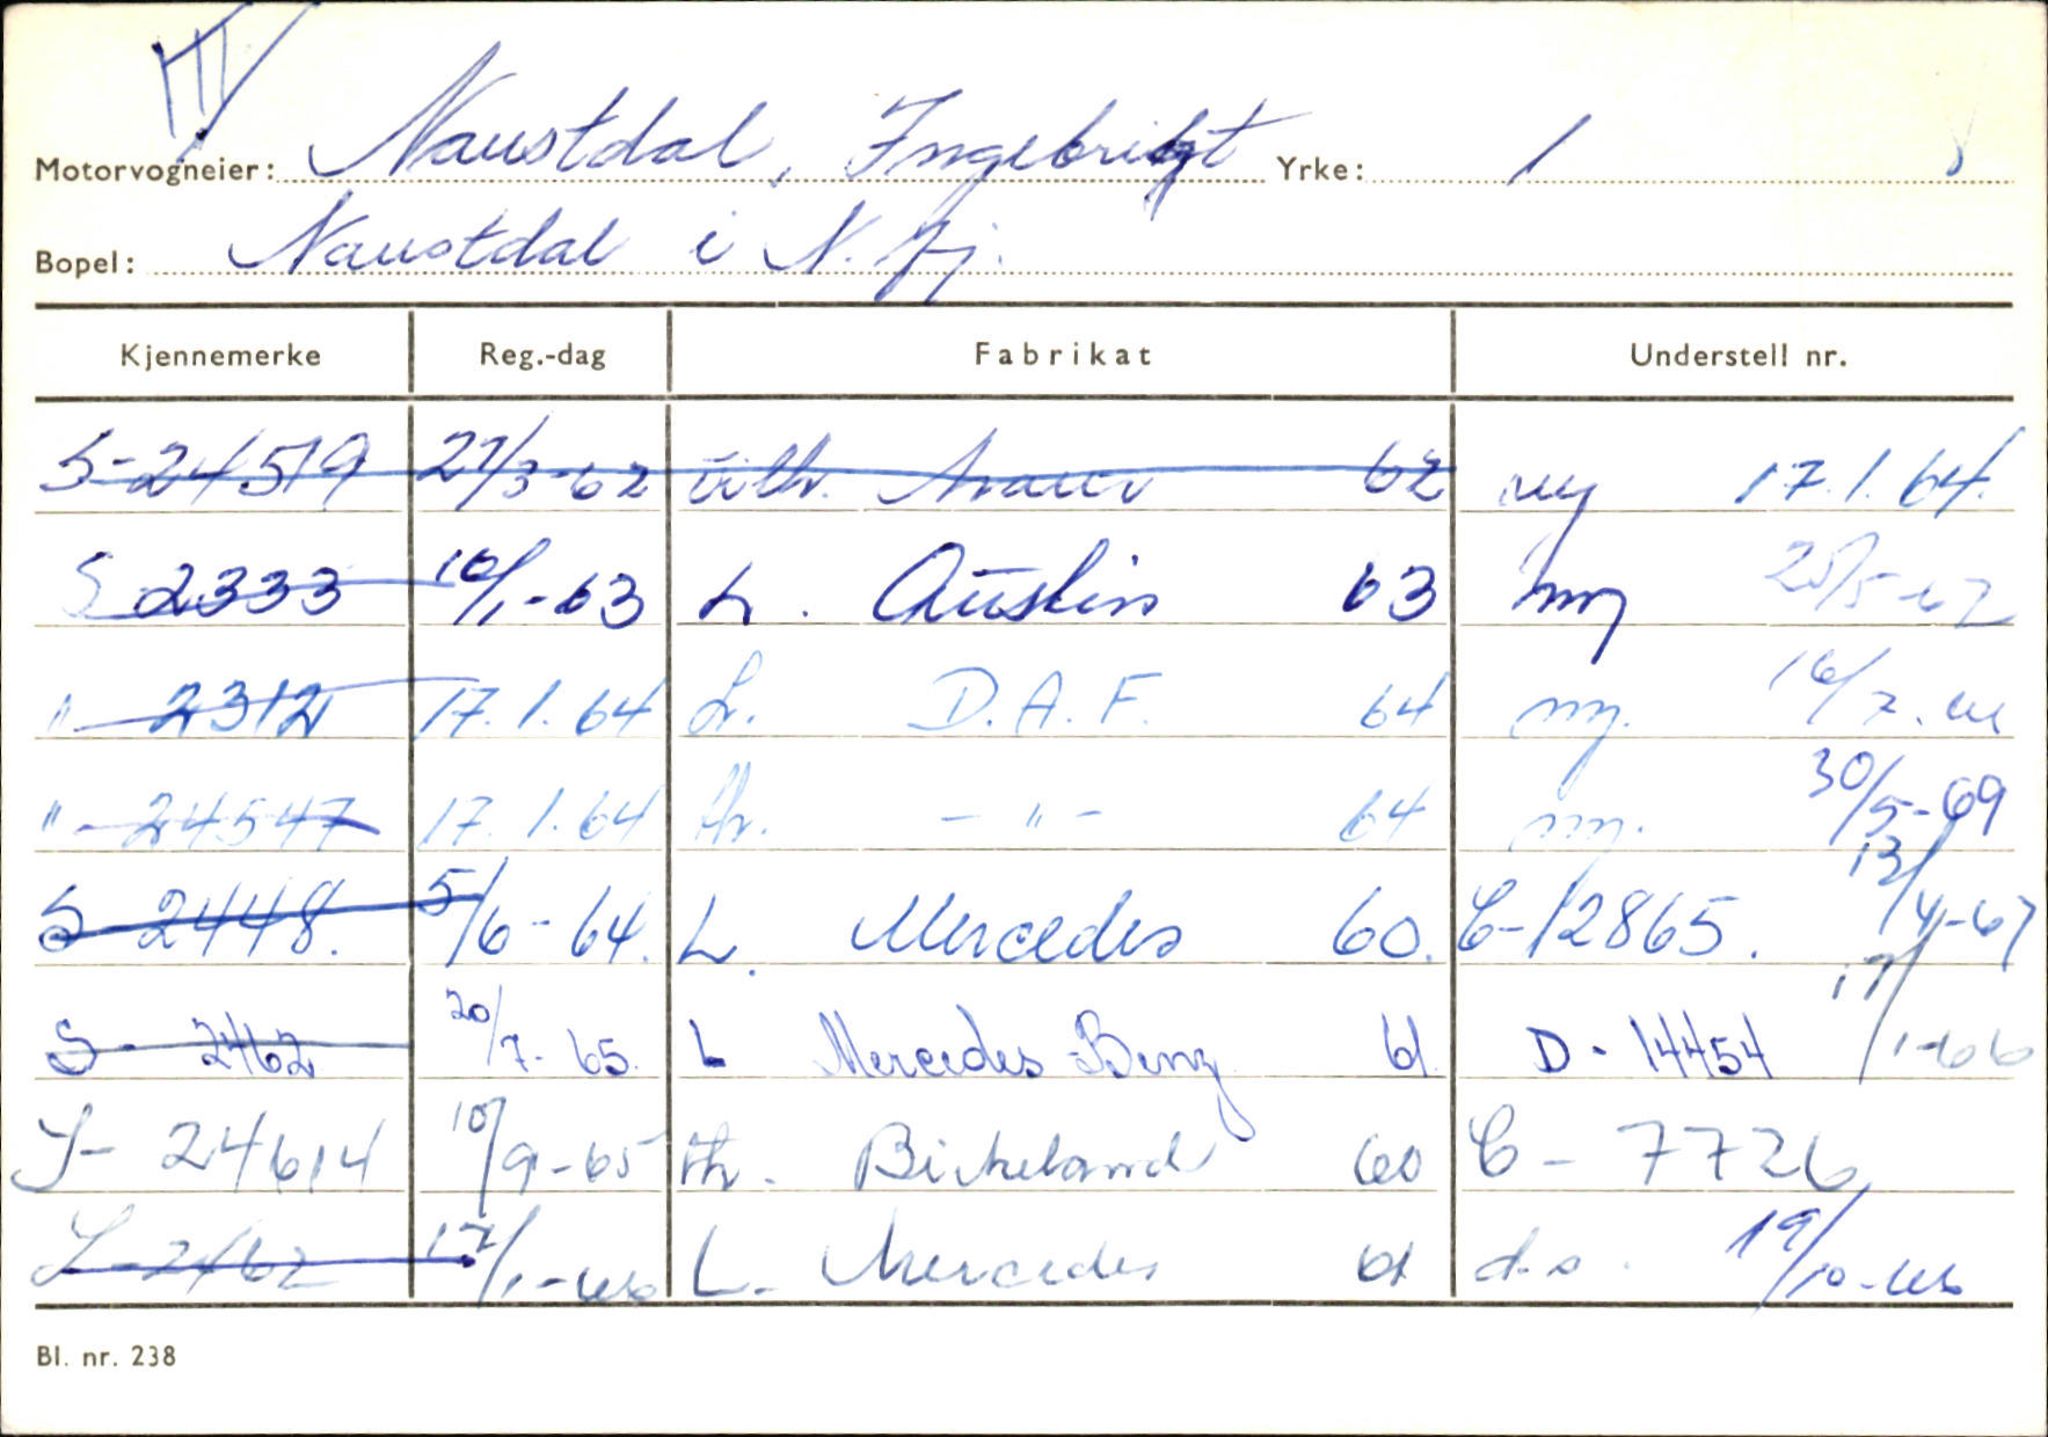 Motorvogneier: Naustdal, Ingebrigt Yrke: 1
Bopel: Naustdal i N. Fj.
Kjennemerke Reg.-dag Fabrikat Understell nr.
S-24519 27/3-62 62 ny 17.1.64.
S 2333 10/1-63 L. Austin 63 ny 25/5-67
" 2312 17.1.64 L. D.A.F. 64 ny. 16/7.66
" - 24547 17.1.64 thr. - " - 64 ny. 30/5-69
S 2448. 5/6-64. L. Mercedes 60. C-12865. 13/4-67
S - 2462 20/7-65. L Mercedes Benz 61. D-14454 17/1-66
S- 24614 10/9-65 thr. Birkeland 60 C-7726
S-2462 17/1-66 L. Mercedes 61 d.s. 19/10-66
Bl. nr. 238